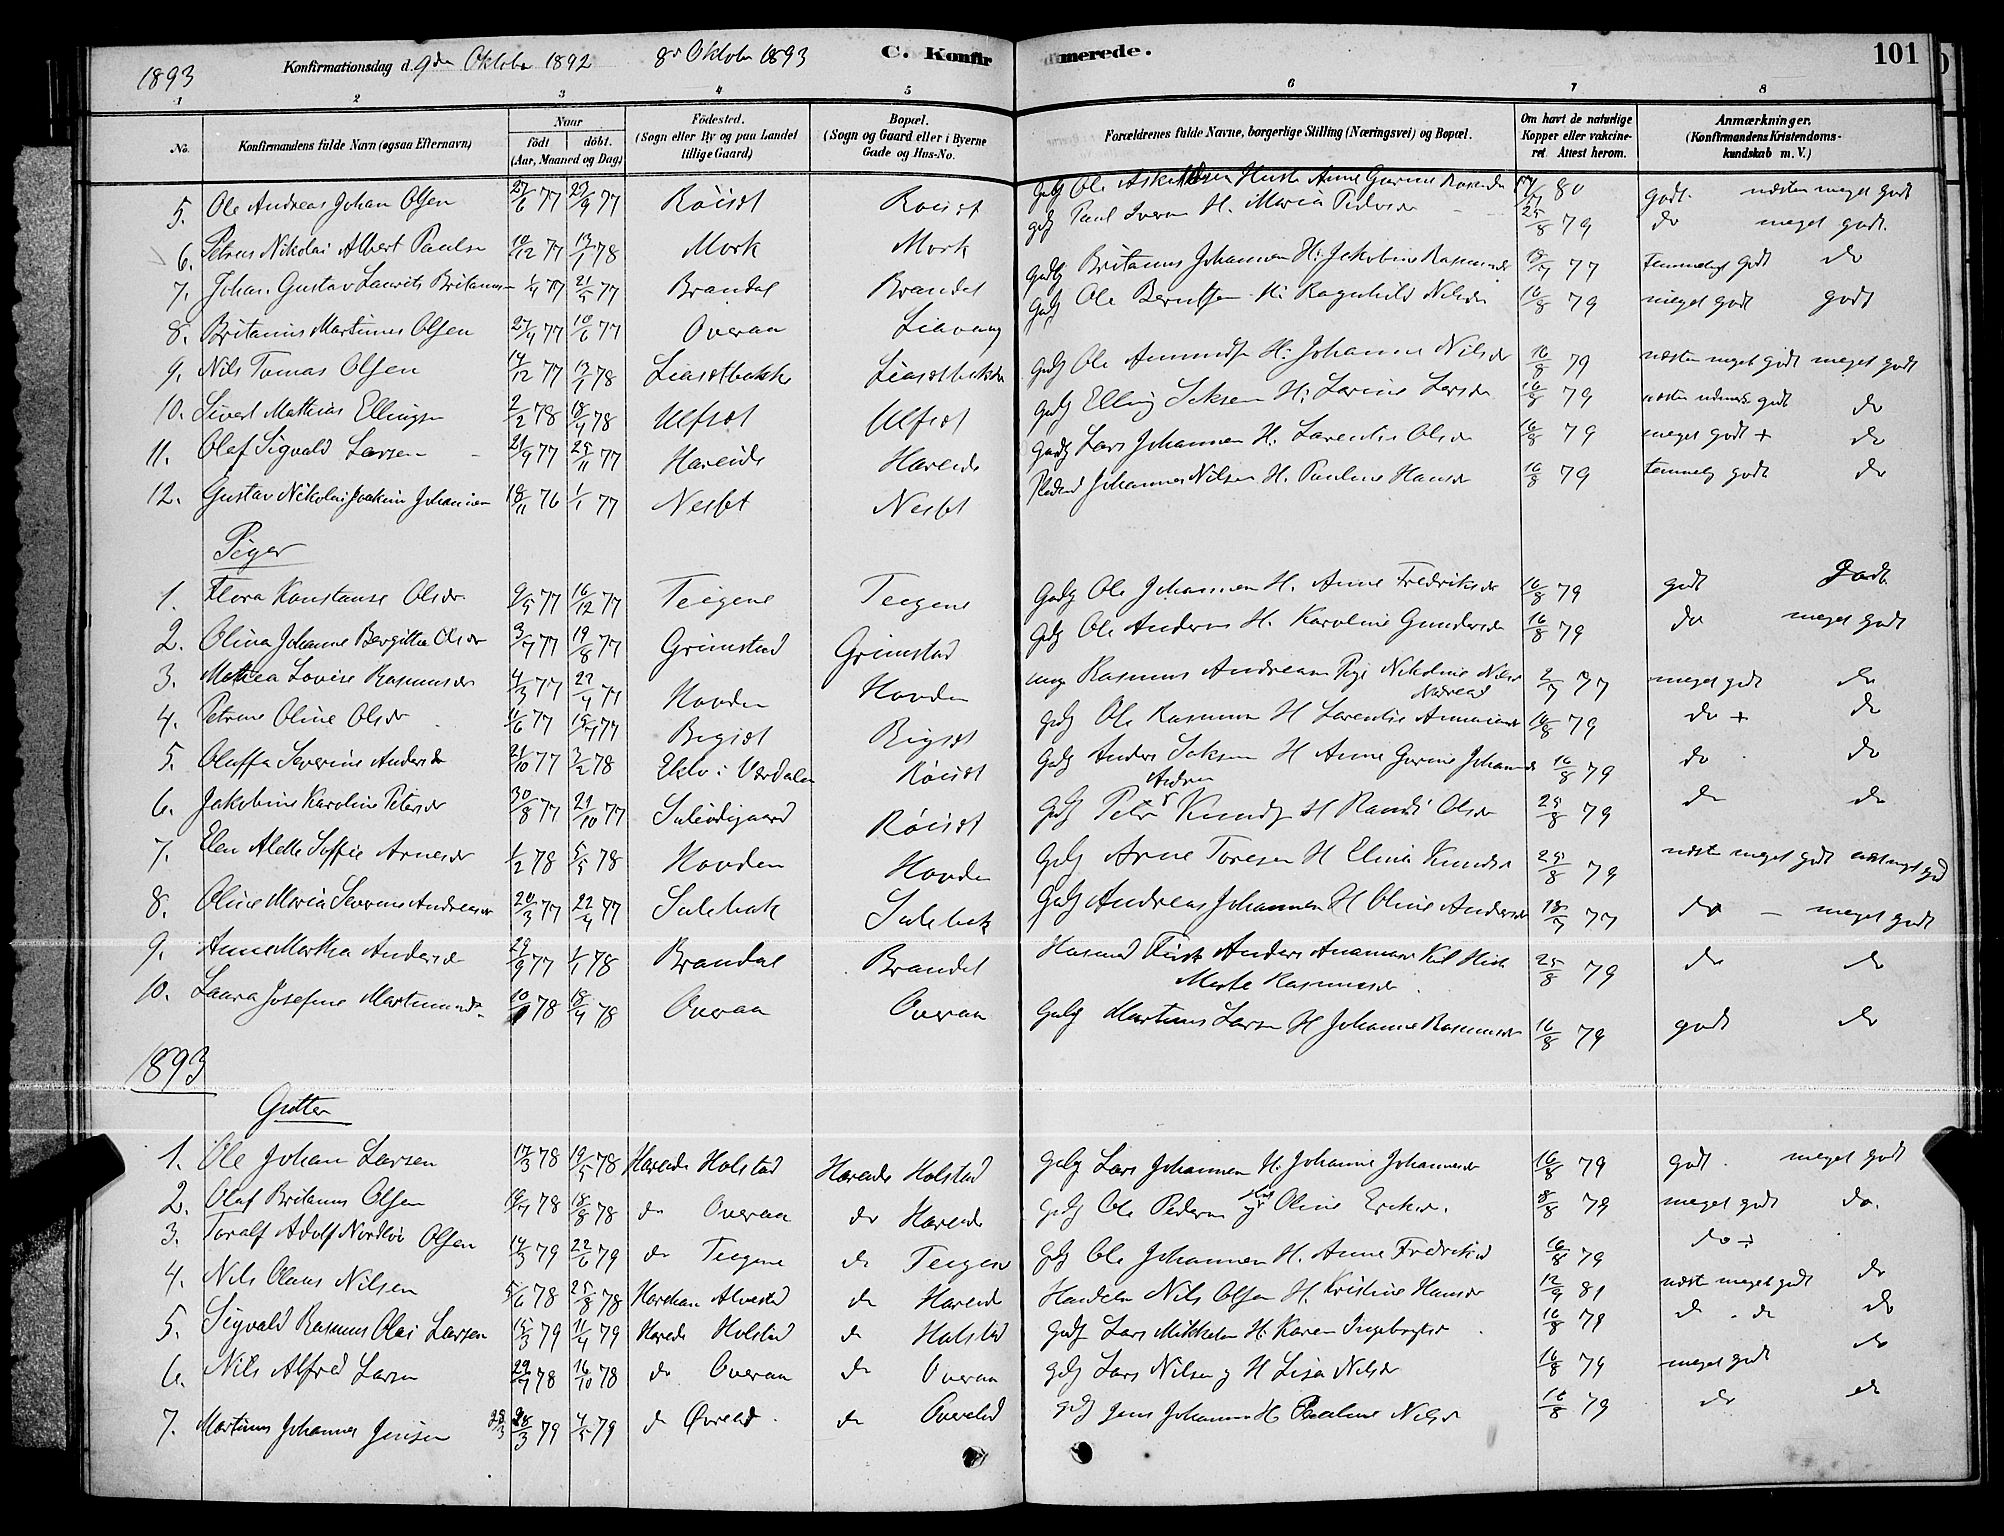 1893 Konfirmationsdag d. 9de Oktober 1892 8de Oktober 1893 C. Konfirmerede. 101
1 2 3 4 5 6 7 8
No. Konfirmandens fulde Navn (ogsaa Efternavn) Naar født døbt. (Aar, Maaned og Dag) Fødested. (Sogn eller By og paa Landet tillige Gaard) Bopæl. (Sogn og Gaard eller i Byerne Gade og Hus-No. Forældrenes fulde Navne, borgerlige Stilling (Næringsvei) og Bopæl. Om havt de naturlige Kopper eller vakcineret. Attest herom. Anmærkninger. (Konfirmandens Kristendomskundskab m. V.)
5. Ole Andreas Johan Olsen 27/6 77 29/9 77 Röisæt Roisæt Gbrg Ole Hust Anne Gurine 80 godt. næsten meget godt
6. Petrus Nikolai Albert Paulsen 10/12 77 13/1 78 Mork Mork gbrg Paul Iversen H. Maria Pedersdr 25/8 79 do meget godt.
7. Johan Gustav Laurits Britanus 1/4 77 21/5 77 Brandal Brandal Gbrg Britanus Johannsen H: Jakobine Rasmusdr 77 temmelig godt do
8. Britanus Martinus Olsen 27/4 77 10/6 77 Overaa Liavaag Gbrg Ole Berntsen H: Ragnhild Nilsdr 16/8 79 meget godt godt
9. Nils Tomas Olsen 14/12 77 13/1 78 Liasætbakk Liasætbakken Gbrg Ole Amundsen H: Johanne Nilsdr 16/8 79 næsten meget godt meget godt
10. Sivert Mathias Ellingsen 2/2 78 18/4 78 Ulfsæt Ulfsæt gbrg Elling H: Larsdr 16/8 79 næsten godt do
11. Olaf Sigvald Larsen 21/9 77 25/11 77 Hareide Hareide gbrg Lars Johannsen H. Larentse Olsdr 16/8 79 meget godt + do
12. Gustav Nikolai Joakim Johannsen 18/11 76 1/1 77 Nesset Nesset Johannes Nilsen H. Pauline Hansdr 16/8 79 temmelig godt do
Piger
1. Flora Konstanse Olsdr 77 16/12 77 Teigene Teigene Gbrg Ole Johannsen H. Anne Fredriksdr 16/8 79 godt Godt.
2. Olina Johanne Bergitha Olsdr 3/7 77 19/8 77 Grimstad Grimstad Gbrg Ole Andersen H. Karoline Gundersdr 16/8 79 do meget godt
3. Mathea Lovise Rasmusdr 4/3 77 22/4 77 Hovden Hovden ung Rasmus Andreasen Pige Nikoline 2/7 77 meget godt do
4. Petrine Oline Olsdr 11/6 77 15/7 77 Bigset Bigset gbrg Ole Rasmusen H Larentse 16/8 79 do + do
5. Oluffa Severine Andersdr 21/10 77 3/2 78 Eklo i Værdalen Röisæt Gbrg Anders H Anne Gurine Johannsdr 16/8 79 do do
6. Jakobine Karoline Petersdr 30/8 77 21/10 77 Röisæt gbrg Peter Knudsen H Randi Olsdr 25/8 79 do do
7. Elen Alette Soffie Arnesdr 1/2 78 5/5 78 Hovden Hovden Gbrg Arne Toresen H Elina Knudsdr 25/8 79 næsten meget godt næsten meget godt
8. Oline Maria Severine Andreasdr 20/3 77 22/4 77 Sulebak Sulebak Gbrg Andreas Johannsen H Oline Andersdr 18/7 77 do – meget godt
9. Anne Martha Andersdr 29/9 77 1/1 78 Brandal Brandal Husmd Anders Hust Marte Rasmusdr 25/8 79 do do
10. Laura Josefine Martinusdr 10/1 78 18/4 78 Overaa Overaa Gbrg Martinus Larsen H Johanne Rasmusdr 16/8 79 godt do
1893
Gutter
1. Ole Johan Larsen 17/3 78 19/5 78 Hareide Holstad Hareide Holstad gbrg Lars Johannsen H: Johanne Johannesdr 16/8 79 godt. meget godt
2. Olaf Britanus Olsen 19/7 78 18/8 78 do Overaa do Hareide gbrg Ole Pedersen Oline 8/8 79 meget godt do.
3. Toralf Adolf Olsen 14/3 79 22/6 79 do Teigene do Teigene gbrg Ole Johannsen H. Anne Fredriksd 16/8 79 do
4. Nils Olaus Nilsen 5/6 78 25/8 78 do Hareide Handelsm Nils Olsen H. Kristine Hansdr 12/9 81 næst meget godt do
5. Sigvald Rasmus Olai Larsen 15/3 79 11/4 79 Hareide Holstad do Holstad Gbrg Lars Mikkelsen H: Karen Ingebrigtsdr 16/8 79 do . do do
6. Nils Alfred Larsen 29/7 78 16/10 78 do Overaa do Overaa gbrg Lars Nilsen og H Lisa Nilsdr 16/8 79 meget godt do
7. Martinus Johannes Jensen 28/3 28/3 79 4/5 79 do Øvrelid do Overelid gbrg Jens Johannsen H Pauline Nilsdr 16/8 79 do do